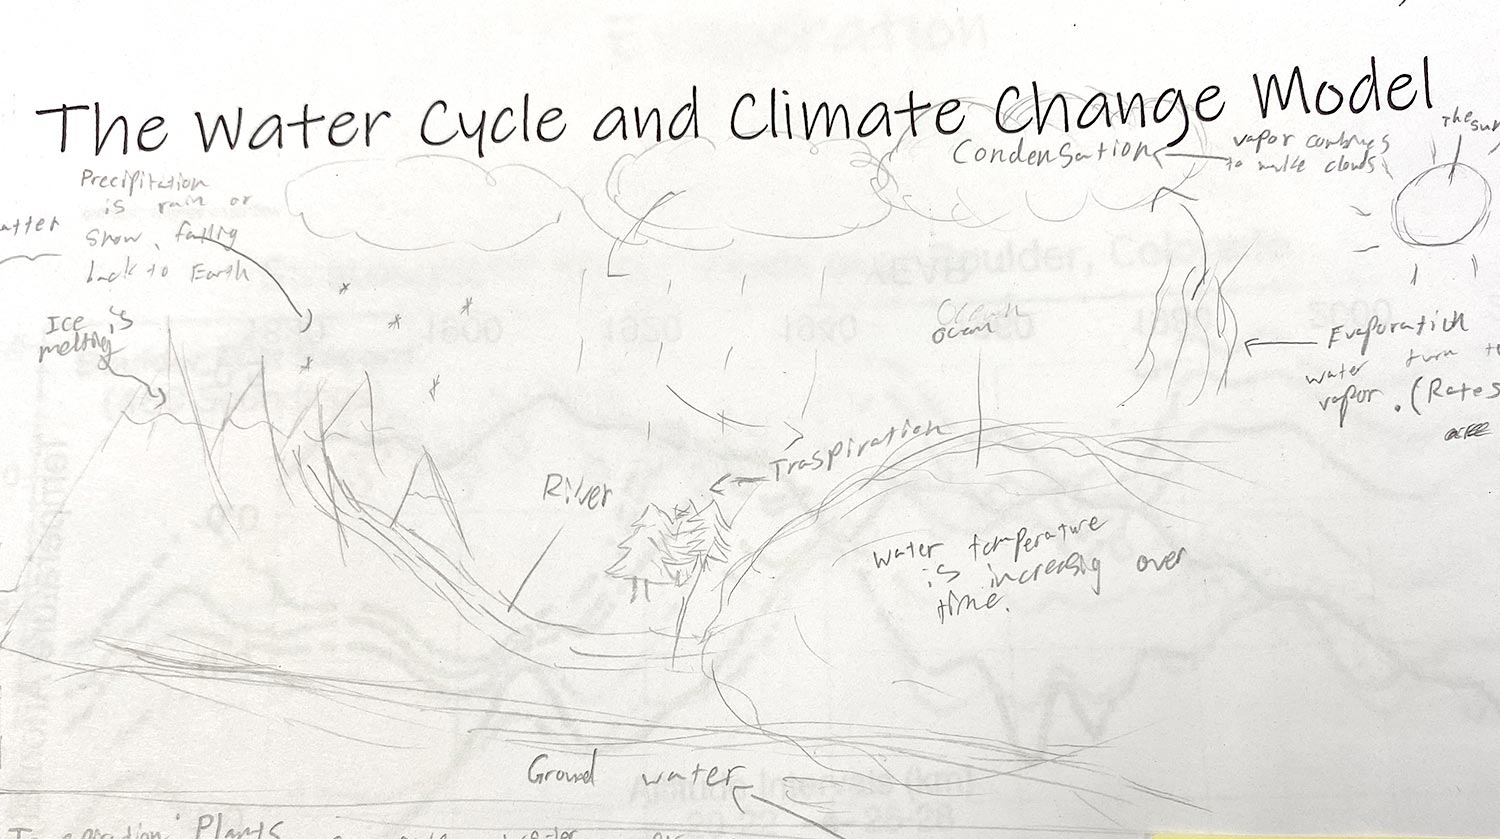 The Water Cycle and Climate Change Model
The sun
Condensation
vapor combines
to make clouds
Precipitation
is rain or
snow, falling
back to Earth
Ice is
melting
ocean
Evaporation
water turn
vapor. (Rates
Traspiration
River
water temperature
is increasing over
time.
Ground water
Plants